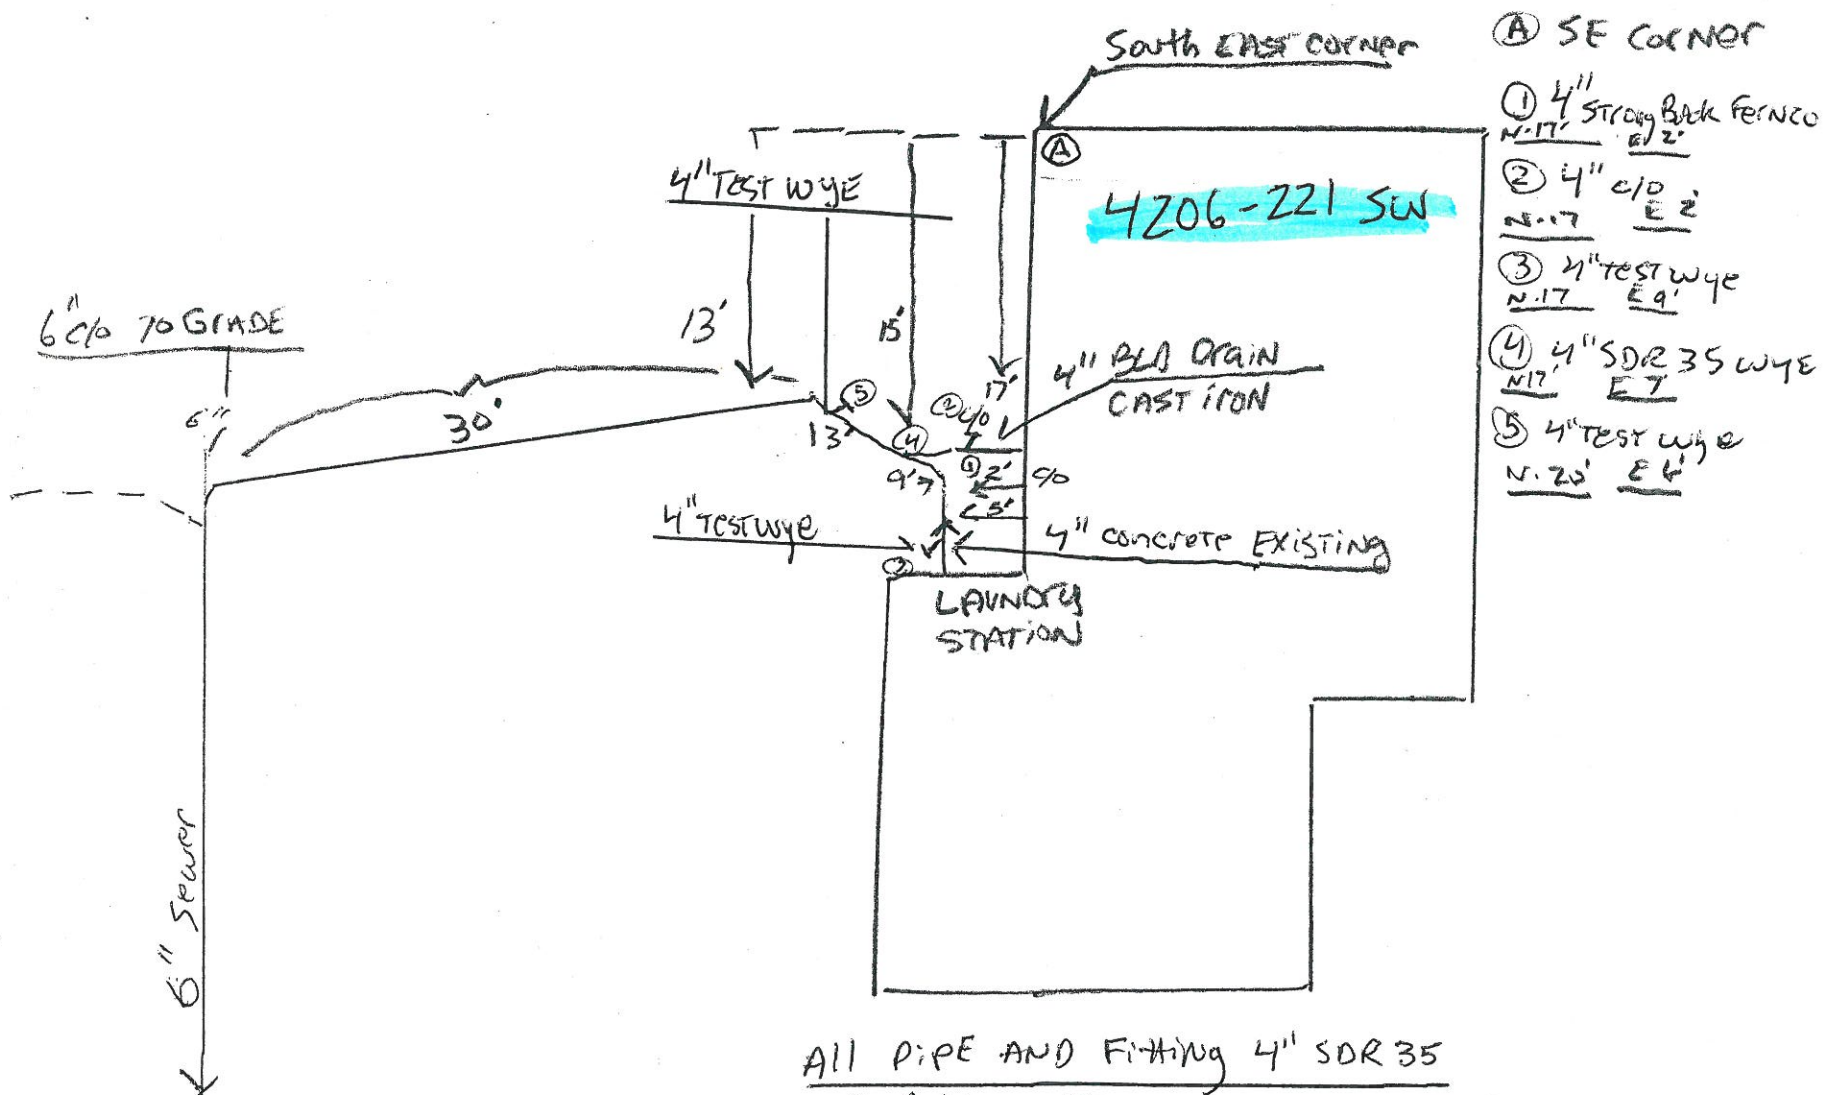 South EAST corner
A SE Corner
1 4" Strong Back Fernco
N.17' E 2'
2 4" c/o
N.17 E 2'
3 4" test wye
N.17 E 9'
4 4" SDR 35 wye
N17' E 7'
5 4" TEST wye
N.20'
A
4206-221 SW
4" TEST WYE
6" c/o TO GRADE
6"
30'
13'
15'
17'
4" BLD Drain
CAST iRON
5
13'
4
2 c/o
1 2'
c/o
9'
5'
4" TEST wye
4" concrete EXISTING
LAUNDry
STATION
6" Sewer
All PiPE AND Fitting 4" SDR 35